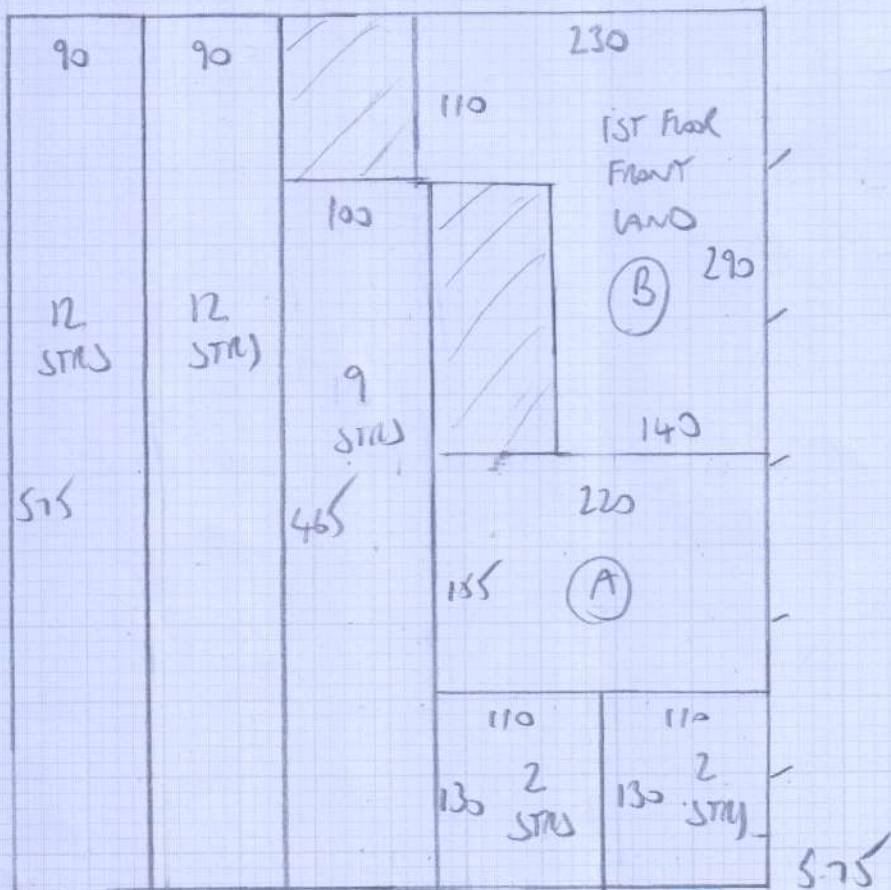 90
90
230
110
1ST FLOOR
FRONT
LAND
100
290
B
12
STRS
12
STRS
9
STRS
140
575
465
220
155
A
110
110
130
2
STRS
130
2
STRS
5.75